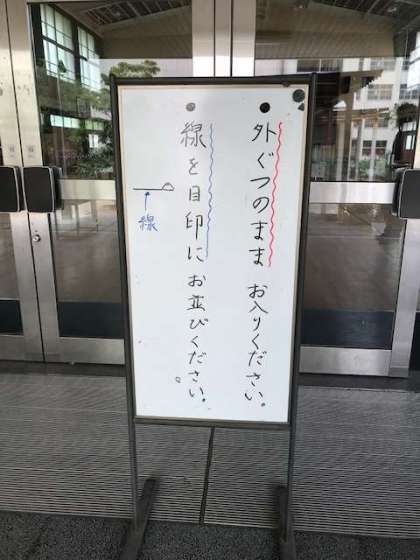 外ぐつのまま お入りください。
線を目印に お並びください。
↑線